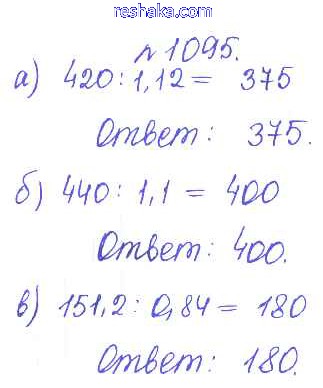 reshaka.com
№1095.
а) 420 : 1,12 = 375
Ответ: 375.
б) 440 : 1,1 = 400
Ответ: 400.
в) 151,2 : 0,84 = 180
Ответ: 180.